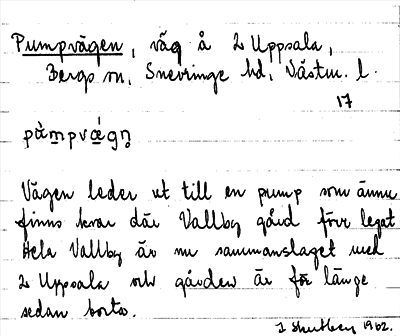 Pumpvägen, väg å 2 Uppsala,
Bergs sn, Snevringe hd, Västm. l.
17
Vägen leder ut till en pump som ännu
finns kvar där Vallby gård förr legat
Hela Vallby är nu sammanslaget med
2 Uppsala och gården är för länge
sedan borta.
1962.